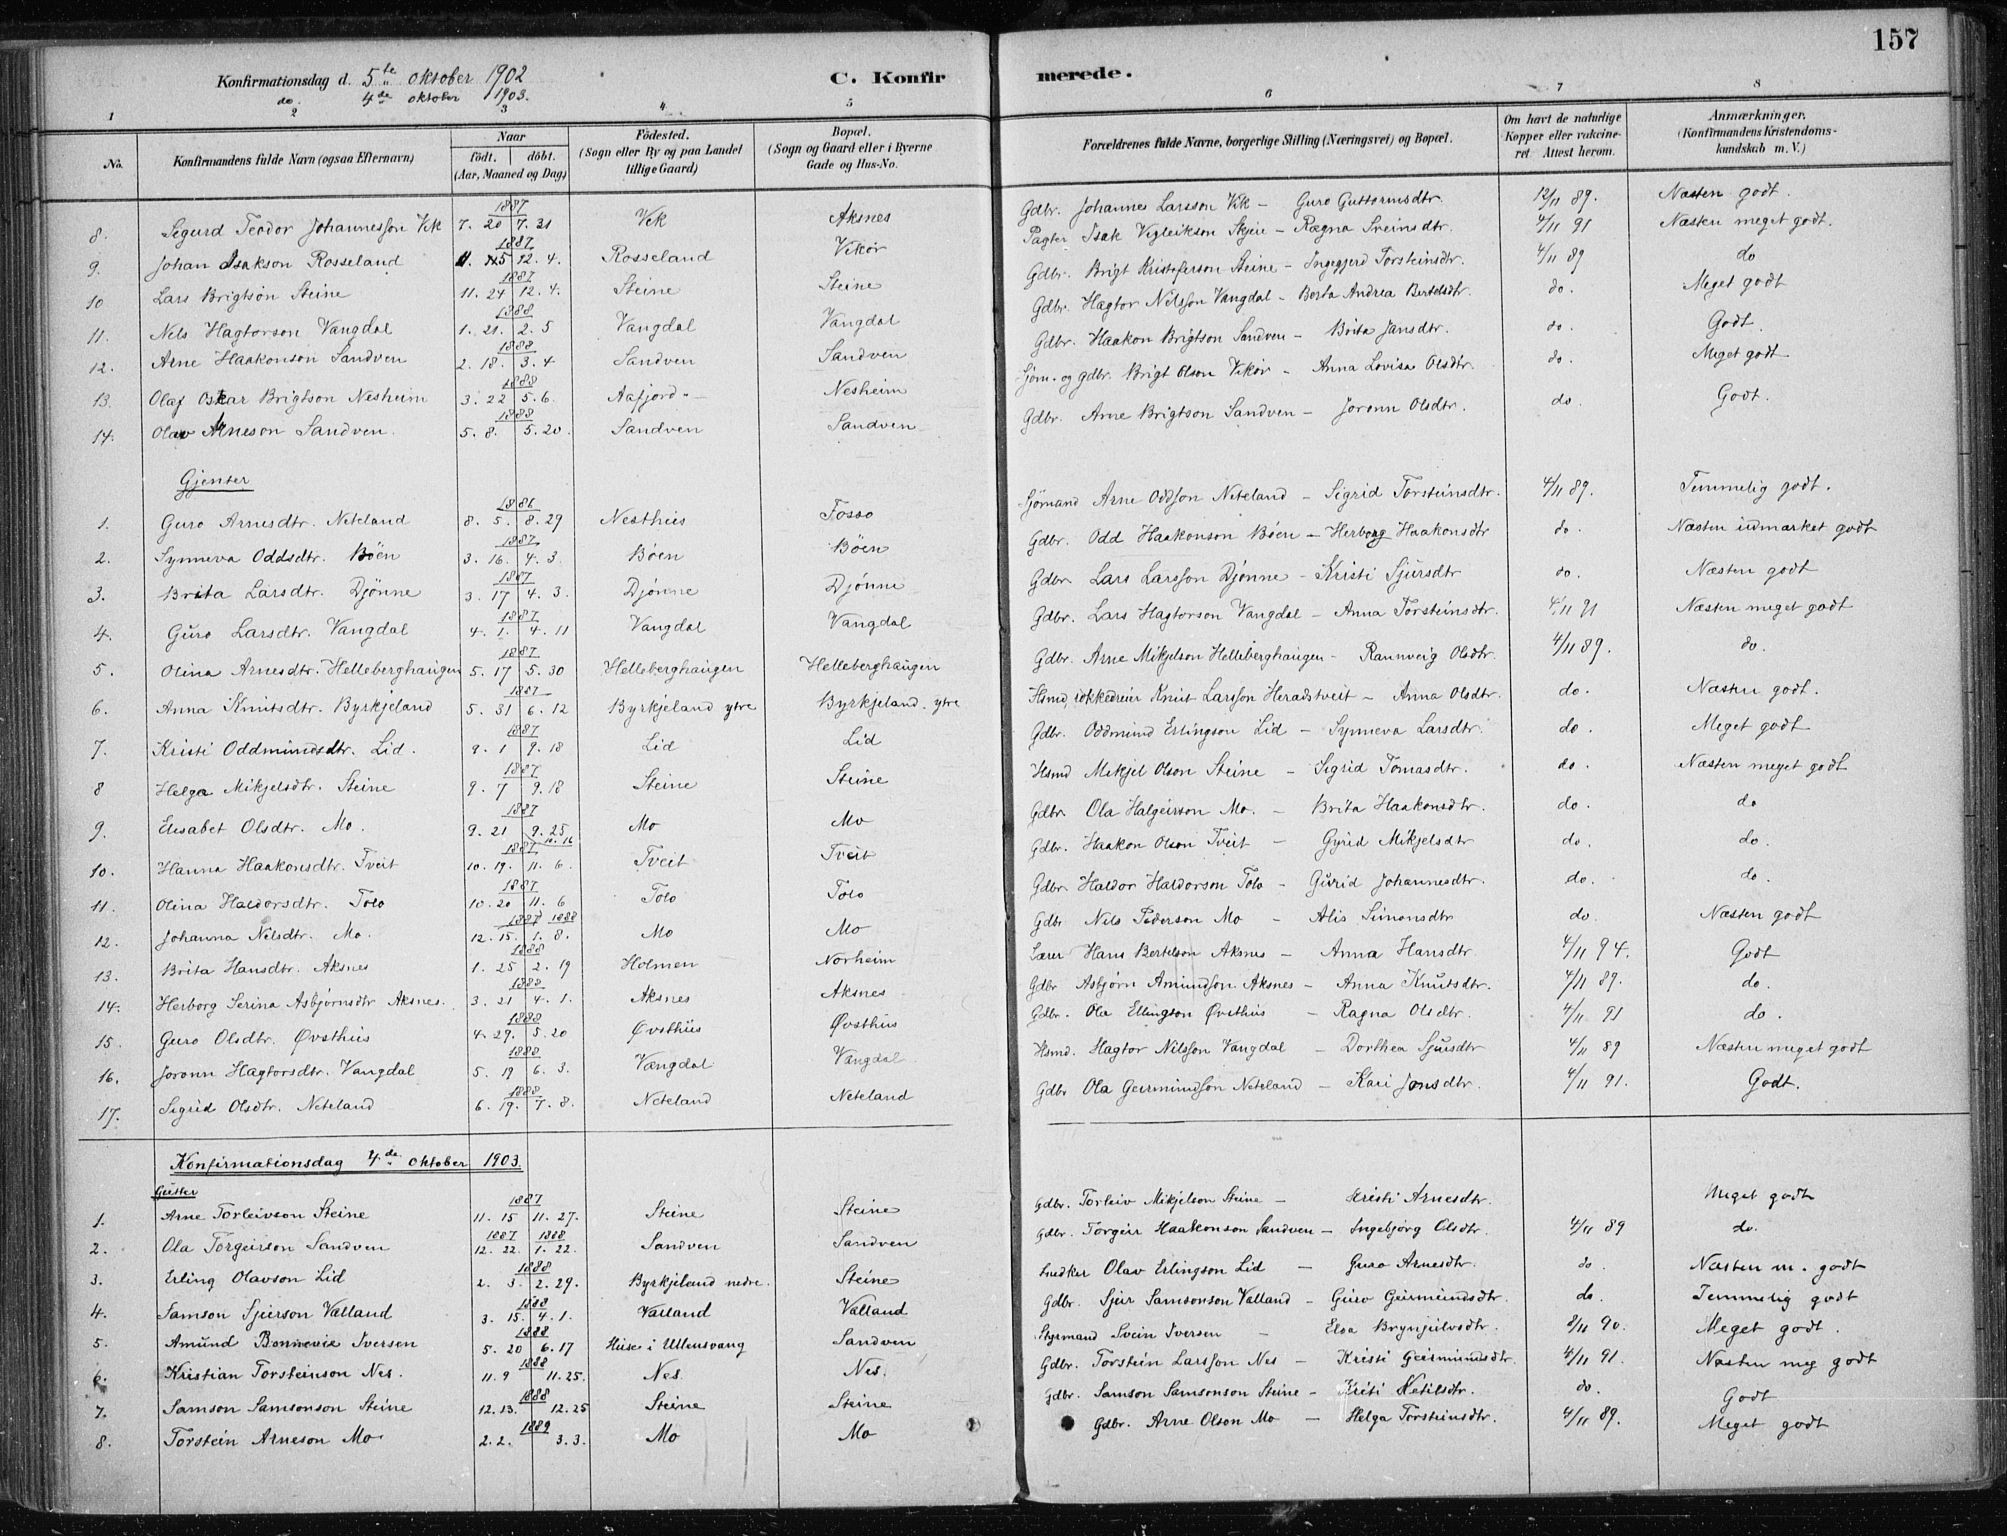 157
Konfirmationsdag d. 5te oktober 1902 C. Konfirmerede.
do. 4de oktober 1903.
1 2 3 4 5 6 7 8
No. Konfirmandens fulde Navn (ogsaa Efternavn) Naar født. døbt. (Aar, Maaned og Dag) Fødested. (Sogn eller By og paa Landet tillige Gaard) Bopæl. (Sogn og Gaard eller i Byerne Gade og Hus-No. Forældrenes fulde Navne, borgerlige Stilling (Næringsvei) og Bopæl. Om havt de naturlige Kopper eller vakcineret Attest herom. Anmærkninger. (Konfirmandens Kristendomskundskab m. V.)
8. Sigurd Teodor Johannesson Vik 1887 7. 20 7. 31 Vik Aksnes Gdbr. Johannes Larsson Vik – Guro Guttormsdtr. 12/11 89. Næsten godt.
9. Johan Isakson Rosseland 1887 11. 15 12. 4. Rosseland Vikør Pagter Isak Vigleikson Skjeie – Ragna Sveinsdtr. 4/11 91 Næsten meget godt.
10 Lars Brigtson Steine 1887 11. 24 12. 4. Steine Steine Gdbr. Brigt Kristoferson Steine – Ingegjerd Torsteinsdtr. 4/11 89 do
11. Nils Hagtorson Vangdal 1888 1. 21. 2. 5 Vangdal Vangdal Gdbr. Hagtor Nilsson Vangdal – Berta Andrea Bertelsdtr. do. Meget godt
12. Arne Haakonson Sandven 1888 2. 18. 3. 4 Sandven Sandven Gdbr. Haakon Brigtson Sandven – Brita Jansdtr. do. Godt.
13. Olaf Oskar Brigtson Nesheim 1888 3. 22 5. 6. Aafjord Nesheim Sjøm. og gdbr. Brigt Olson Vikør – Anna Lovisa Olsdtr. do. Meget godt
14. Olav Arneson Sandven. 1888 5. 8. 5. 20. Sandven Sandven Gdbr. Arne Brigtson Sandven – Joronn Olsdtr. do. Godt.
Gjenter
1. Guro Arnesdtr. Neteland 1886 8. 5. 8. 29 Nesthus Fosso Sjømand Arne Oddson Neteland – Sigrid Torsteinsdtr. 4/11 89. Temmelig godt.
2. Synneva Oddsdtr. Bøen 1887 3. 16. 4. 3. Bøen Bøen Gdbr. Odd Haakonson Bøen – Herborg Haakonsdtr do. Næsten udmærket godt
3. Brita Larsdtr. Djønne 1887 3. 17 4. 3. Djønne Djønne Gdbr. Lars Larsson Djønne – Kristi Sjursdtr do. Næsten godt
4. Guro Larsdtr. Vangdal 1887 4. 1. 4. 11 Vangdal Vangdal Gdbr. Lars Hagtorson Vangdal – Anna Torsteinsdtr. 4/11 91 Næsten meget godt
5. Olina Arnesdtr. Helleberghaugen 1887 5. 17 5. 30 Helleberghaugen Helleberghaugen Gdbr. Arne Mikjelson Helleberghaugen – Rannveig Olsdtr. 4/11 89. do.
6. Anna Knutsdtr. Byrkjeland 1887 5. 31 6. 12 Byrkjeland ytre Byrkjeland ytre Hsmd, Knut Larsson Heradstveit – Anna Olsdtr. do. Næsten godt.
7. Kristi Oddmundsdtr. Lid. 1887 9. 1 9. 18 Lid Lid Gdbr. Oddmund Erlingson Lid – Synneva Larsdtr. do. Meget godt
8 Helga Mikjelsdtr. Steine 1887 9. 7 9. 18 Steine Steine Hsmd Mikjel Olson Steine – Sigrid Tomasdtr. do. Næsten meget godt
9. Elisabet Olsdtr. Mo. 1887 9. 21 9. 25 10. 16 Mo Mo Gdbr. Ola Halgeirson Mo. – Brita Haakonsdtr. do. do
10. Hanna Haakonsdtr. Tveit 1887 10. 19. 11. 6. Tveit Tveit Gdbr. Haakon Olson Tveit – Gyrid Mikjelsdtr do. do.
11. Olina Haldorsdtr. Tolo 1887 10. 20 11. 6 Tolo Tolo Gdbr. Haldor Haldorson Tolo – Gurid Johannesdtr. do. do.
12. Johanna Nilsdtr. Mo. 1887 1888 12. 15. 1. 8. Mo Mo Gdbr Nils Pederson Mo – Alis Simonsdtr do. Næsten godt
13. Brita Hansdtr. Aksnes 1888 1. 25 2. 19 Holmen Norheim Lærer Hans Bertelson Aksnes – Anna Hansdtr. 4/11 94. Godt
14. Herborg Serina Asbjørnsdtr Aksnes. 1888 3. 21 4. 1. Aksnes Aksnes Gdbr Asbjørn Amundson Aksnes – Anna Knutsdtr. 4/11 89. do.
15. Guro Olsdtr. Øvsthus 1888 4. 29. 5. 20 Øvsthus Øvsthus Gdbr. Ola Ellingson Øvsthus – Ragna Olsdtr. 4/11 91 do.
16. Joronn Hagtorsdtr. Vangdal 1888 5. 19 6. 3. Vangdal Vangdal Hsmd. Hagtor Nilsson Vangdal – Dorthea Sjursdtr 4/11 89 Næsten meget godt
17. Sigrid Olsdtr. Neteland 1888 6. 19. 7. 8. Neteland Neteland Gdbr Ola Geirmundson Neteland – Kari Jonsdtr. 4/11 91. Godt.
Konfirmationsdag 4de oktober 1903.
Gutter
1. Arne Torleivson Steine 1887 11. 15 11. 27. Steine Steine Gdbr. Torleiv Mikjelson Steine – Kristi Arnesdtr. Meget godt
2. Ola Torgeirson Sandven 1887 1888 12. 22. 1. 22. Sandven Sandven Gdbr. Torgeir Haakonson Sandven – Ingebjørg Olsdtr. 4/11 89 do.
3. Erling Olavson Lid 1888 2. 3. 2. 29. Byrkjeland nedre. Steine Snedker Olav Erlingson Lid – Guro Arnesdtr. do. Næsten m. godt
4. Samson Sjurson Vatland 1888 3. 15. 4. 1. Vatland Vatland Gdbr. Sjur Samsonson Vatland – Guro Geirmundsdtr. do. Temmelig godt
5. Amund Bonnevie Iversen 1888 5. 20 6. 17 Huse i Ullensvang Sandven Styrmand Svein Iversen – Elsa Brynjulvsdtr. 8/11 90. Meget godt.
6. Kristian Torsteinson Nes. 1888 11. 9 11. 25. Nes. Nes. Gdbr. Torstein Larsson Nes – Kristi Geirmundsdtr. 4/11 91. Næsten meg godt
7. Samson Samsonson Steine 1888 12. 13. 12. 25 Steine Steine Gdbr. Samson Samsonson Steine – Kristi Ketilsdtr. do. Godt
8. Torstein Arneson Mo 1889 2. 2. 3. 3. Mo Mo Gdbr. Arne Olson Mo – Helga Torsteinsdtr. 4/11 89. Meget godt